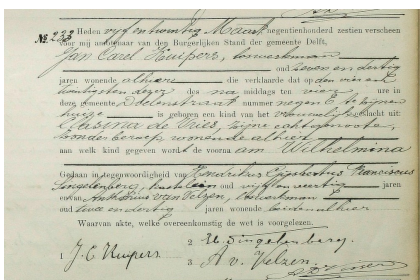 № 233 Heden vijf en twintig Maart negentienhonderd zestien verscheen
voor mij ambtenaar van den Burgerlijken Stand der gemeente Delft,
Jan Carel Kuipers,
oud zeven en dertig
jaren, wonende alhier die verklaarde dat op den vier en
twintigsten dezer des na middags ten vier ure in
deze gemeente Delenstraat nummer negen te zijnen
huize is geboren een kind van het vrouwelijk geslacht uit:
Clasina de Vries, zijne echtgenoote,
zonder beroep, wonende alhier
aan welk kind gegeven wordt de voornaam Wilhelmina
Gedaan in tegenwoordigheid van Hendrikus Franciscus
Singelenberg, oud vijf en veertig jaren
en van van Velzen,
oud twee en dertig jaren, wonende beiden alhier
Waarvan akte, welke overeenkomstig de wet is voorgelezen.
1 J. C. Kuipers 2 H. Singelenberg.
3 A. v. Velzen.